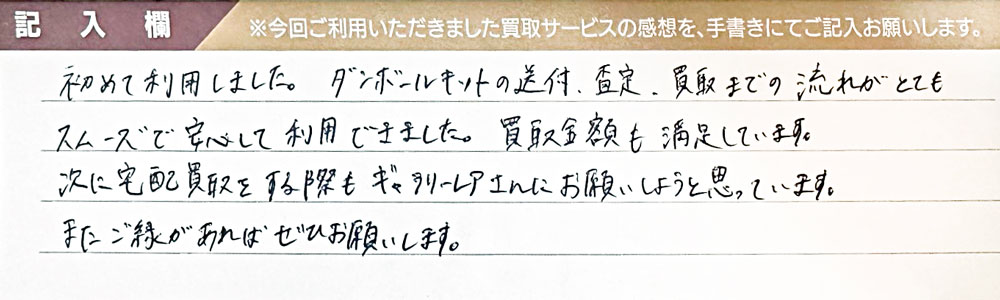 記入欄
※今回ご利用いただきました買取サービスの感想を、手書きにてご記入お願いします。
初めて利用しました。ダンボールキットの送付、査定、買取までの流れがとても
スムーズで安心して利用できました。買取金額も満足しています。
次に宅配買取をする際もギャラリーレアさんにお願いしようと思っています。
またご縁があればぜひお願いします。